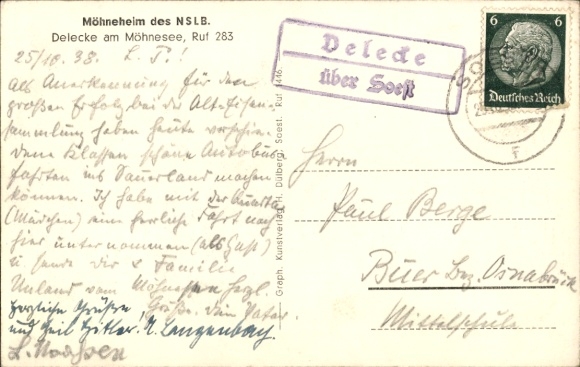 Möhneheim des NSLB.
Delecke am Möhnesee, Ruf 283
25/10.38. L. P.!
Als Anerkennung für den
großen Erfolg bei der Alt-Eisen-
sammlung haben heute verschie-
dene Klassen schöne Autobus
fahrten ins Sauerland machen
können. Ich habe mit der
(Mädchen) eine herrliche Fahrt nach
hier unternommen (als Gast)
u sende dir u Familie
vom Möhnesee herzl.
Grüße. Dein Peter.
Herzliche Grüße
und Heil Hitler. A. Langenbach.
Graph. Kunstverlag H. Dülberg, Soest. Ruf 1416.
Delecke
über Soest
6 6
Deutsches Reich
Herrn
Paul Berge
Buer Bz. Osnabrück
Mittelschule